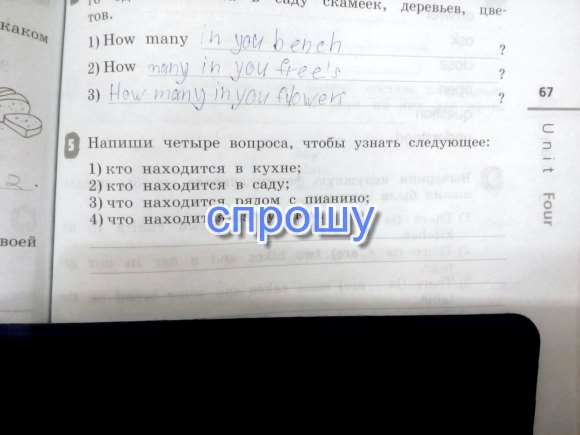 саду скамеек, деревьев, цве-
тов.
каком
1) How many in you bench ?
2) How many in you free's ?
3) How many in you flower ?
67
Unit Four
5 Напиши четыре вопроса, чтобы узнать следующее:
1) кто находится в кухне;
2) кто находится в саду;
3) что находится рядом с пианино;
4) что находит
2.
воей
спрошу